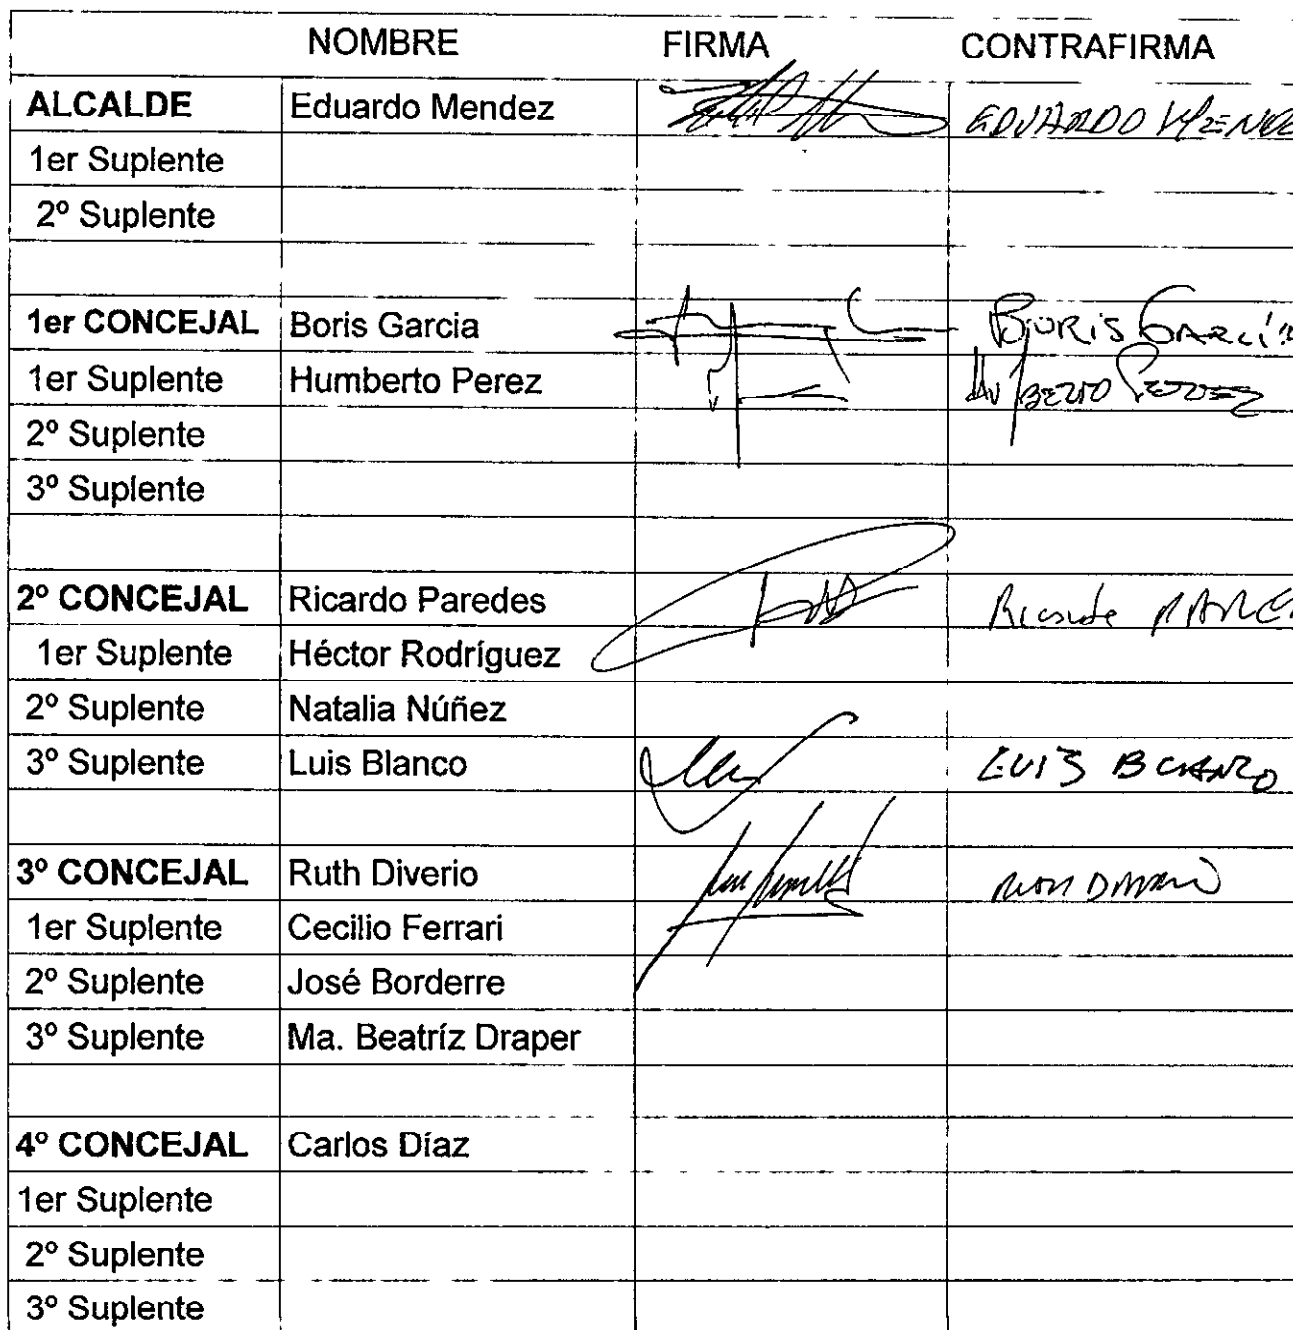 NOMBRE FIRMA CONTRAFIRMA
ALCALDE Eduardo Mendez EDUARDO
1er Suplente
2º Suplente
1er CONCEJAL Boris Garcia BORIS GARCÍA
1er Suplente Humberto Perez
2º Suplente
3º Suplente
2º CONCEJAL Ricardo Paredes
1er Suplente Héctor Rodríguez
2º Suplente Natalia Núñez
3º Suplente Luis Blanco LUIS BLANCO
3º CONCEJAL Ruth Diverio
1er Suplente Cecilio Ferrari
2º Suplente José Borderre
3º Suplente Ma. Beatríz Draper
4º CONCEJAL Carlos Díaz
1er Suplente
2º Suplente
3º Suplente